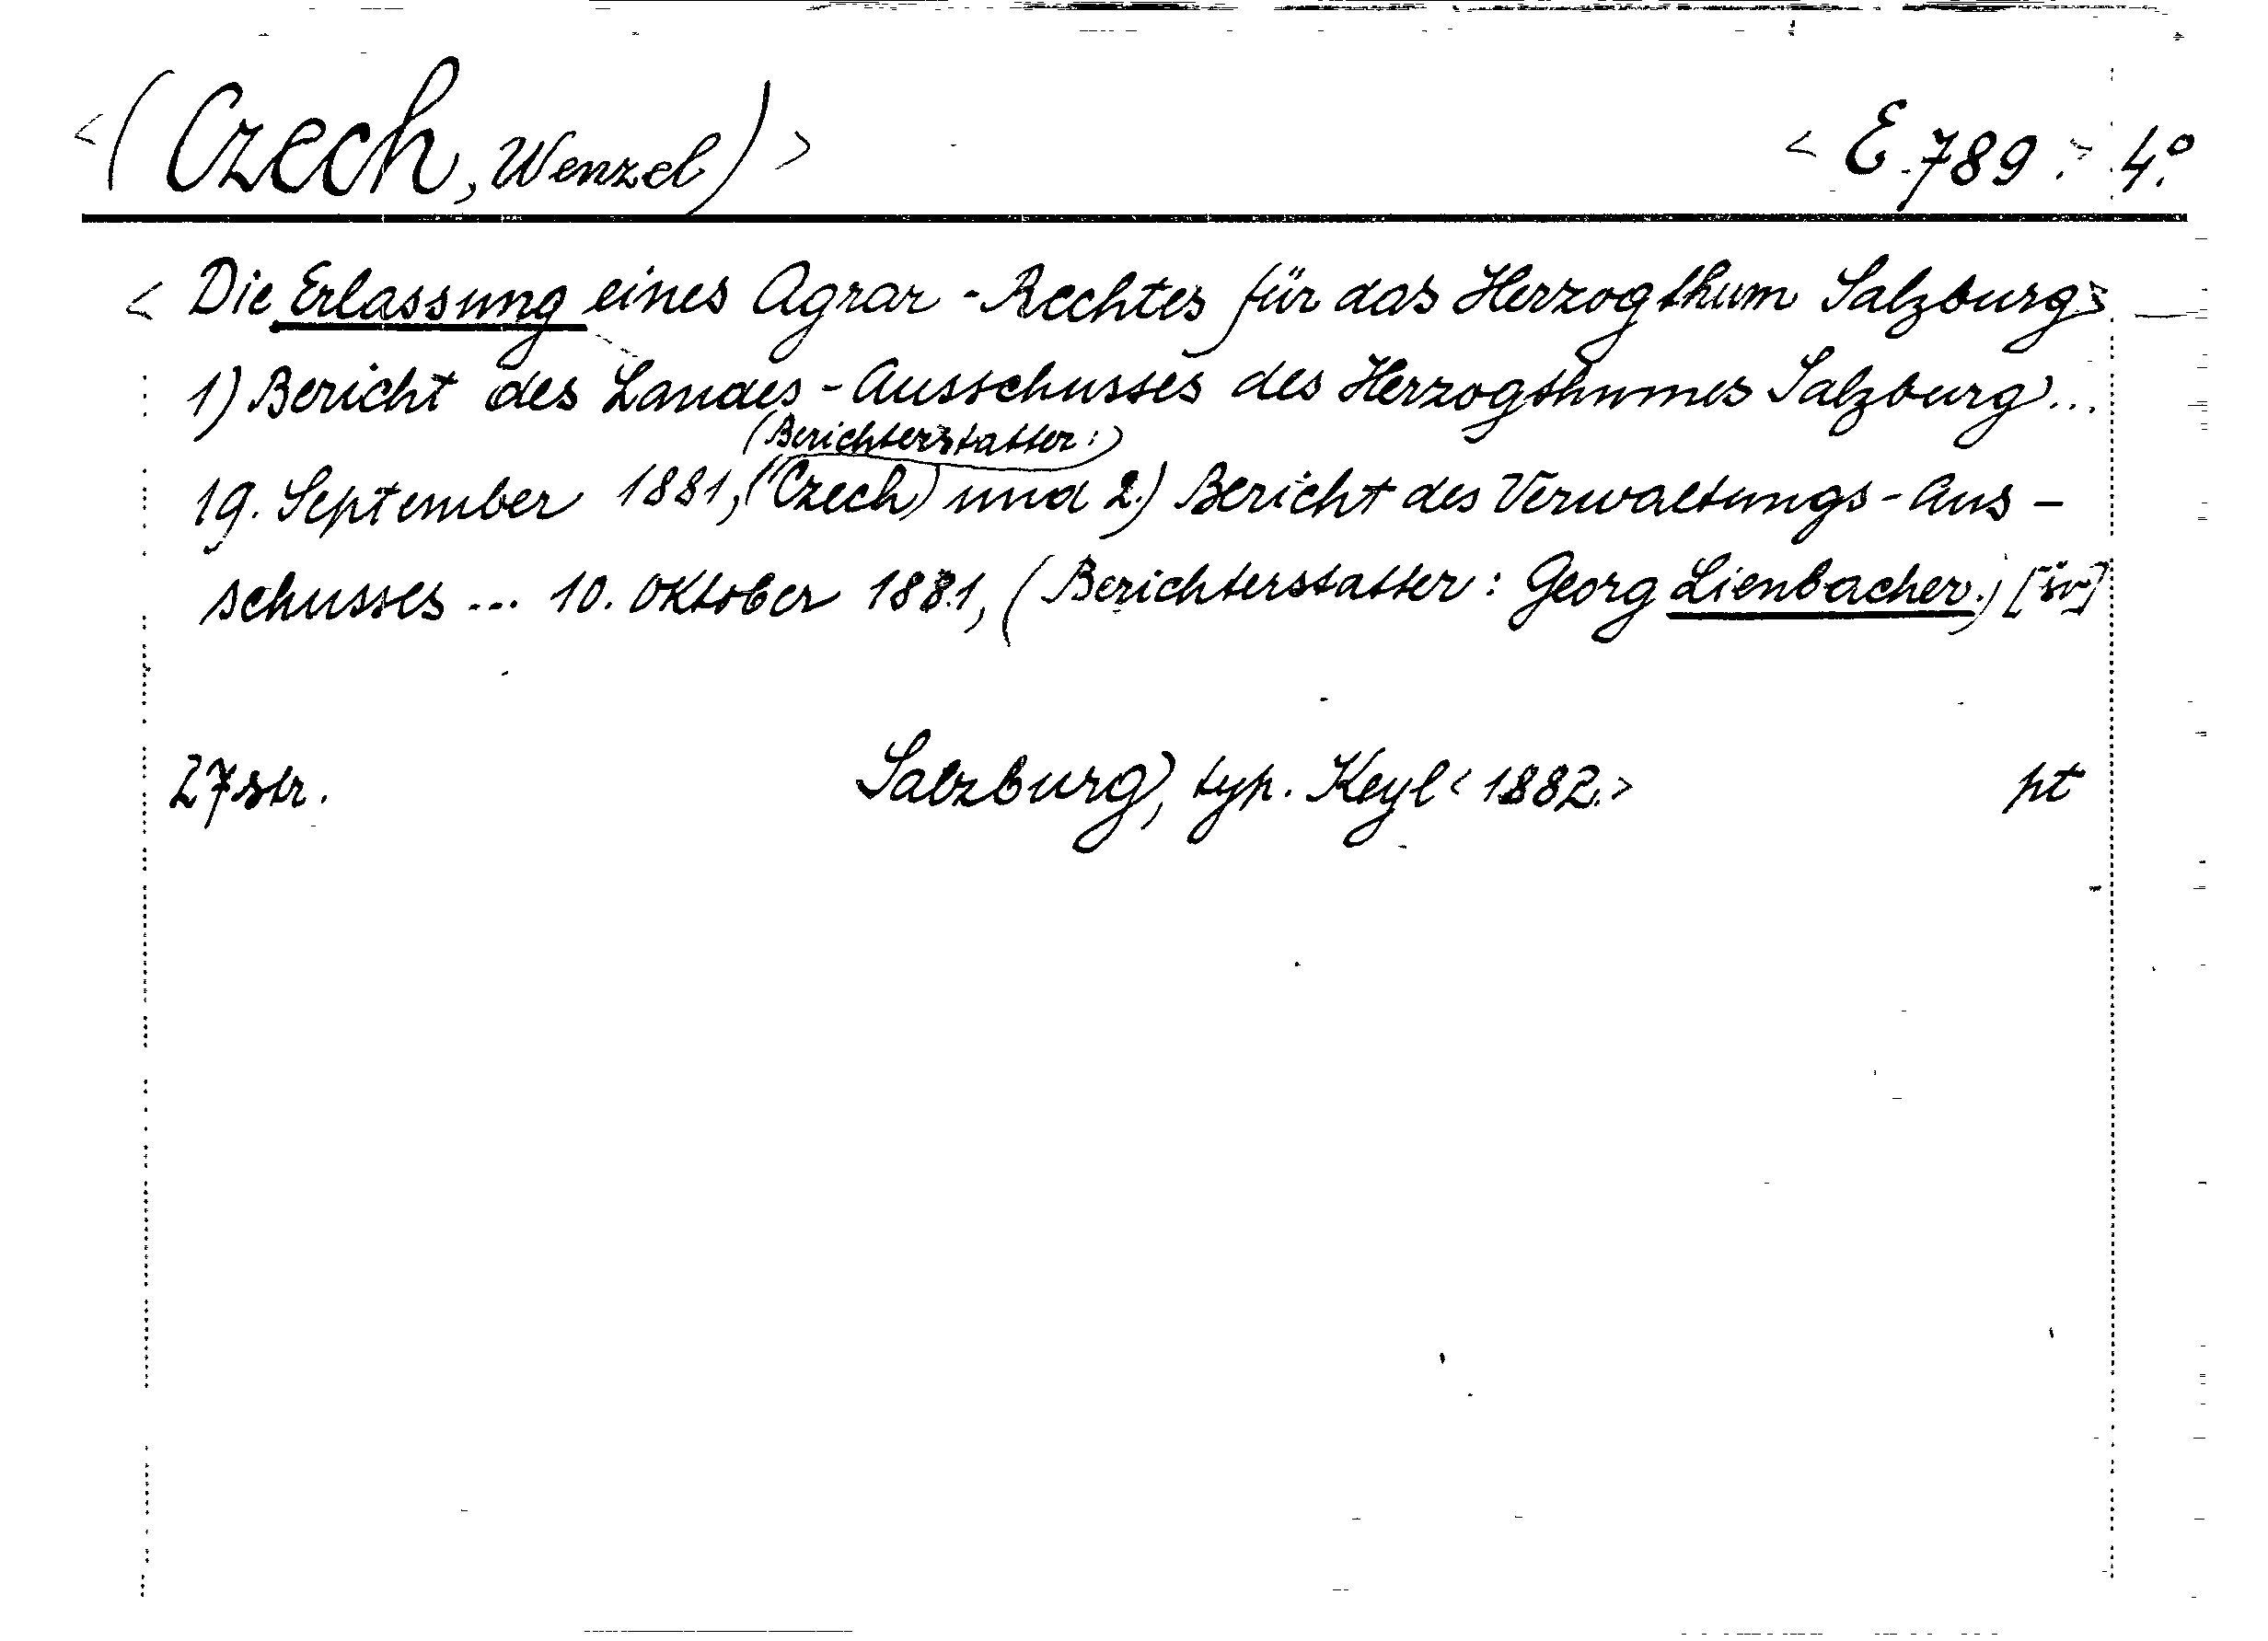 <(Czech, Wenzel)> <E.789.> 4.°
<Die Erlassung eines Agrar-Rechtes für das Herzogthum Salzburg>
1) Bericht des Landes-Ausschusses des Herzogthumes Salzburg...
(Berichterstatter:)
19. September 1881, (Czech) und 2.) Bericht des Verwaltungs-Aus-
schusses ... 10. Oktober 1881, (Berichterstatter: Georg Lienbacher.)
27 str. Salzburg, typ. Keyl <1882.> pt